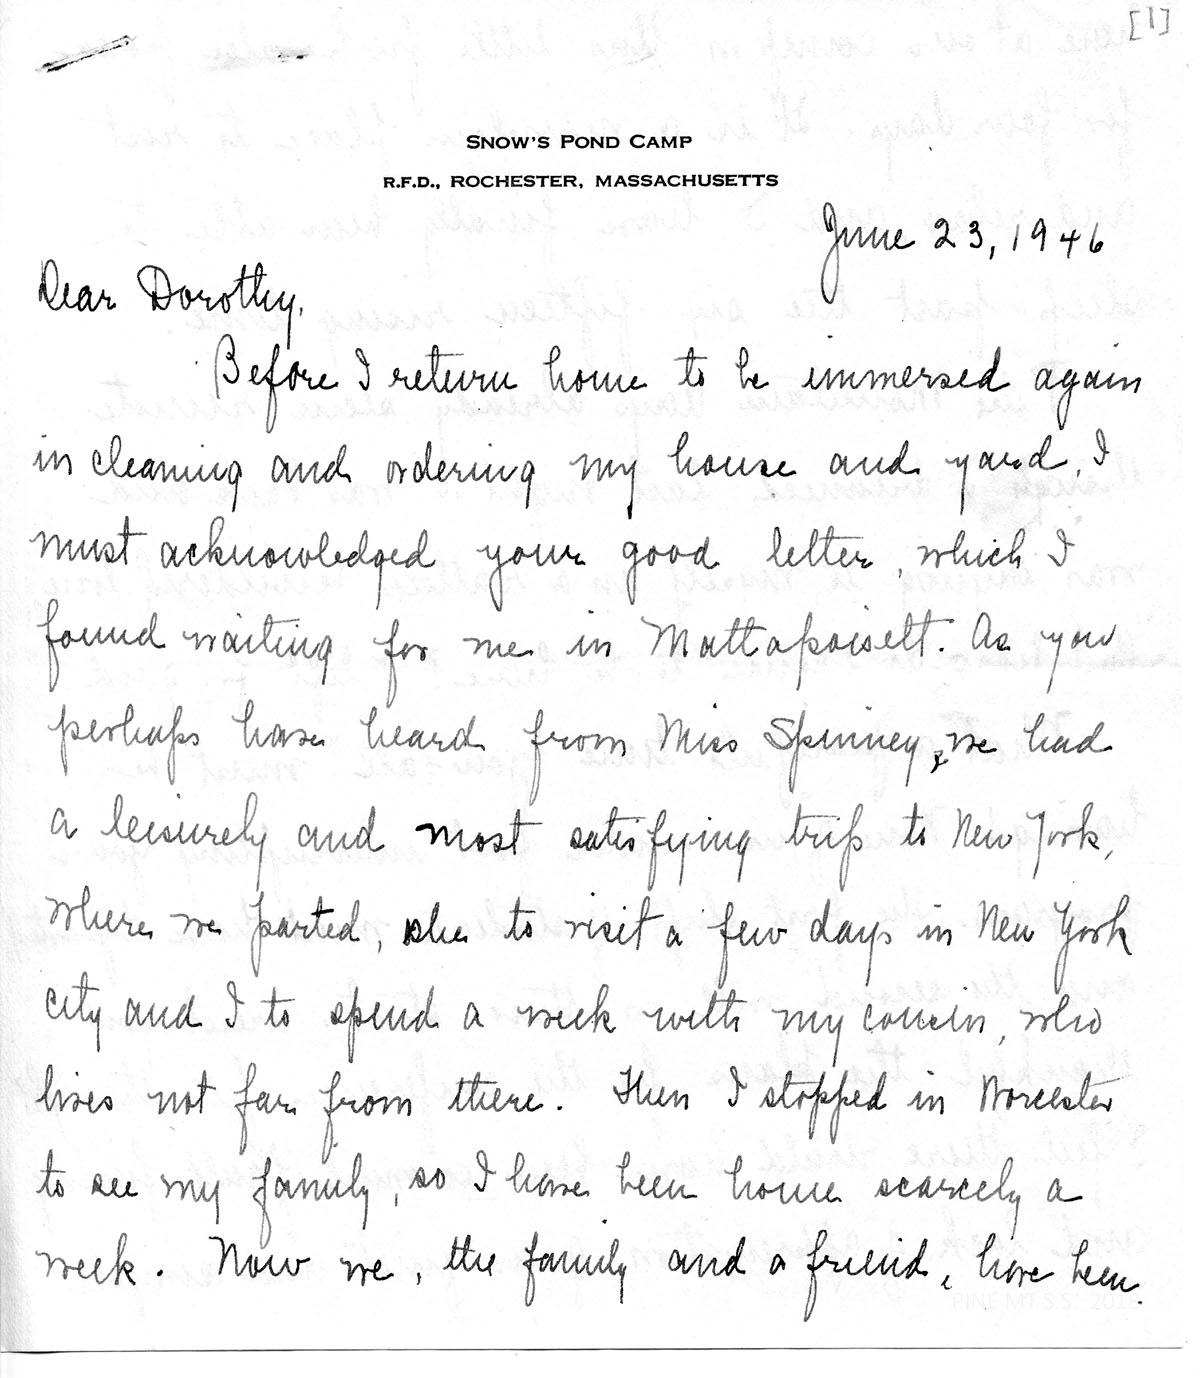 [1]
SNOW'S POND CAMP
R.F.D., ROCHESTER, MASSACHUSETTS
June 23, 1946
Dear Dorothy,
Before I return home to be immersed again
in cleaning and ordering my house and yard, I
must acknowledged your good letter, which I
found waiting for me in Mattapoisett. As you
perhaps have heard from Miss Spinney, we had
a leisurely and most satisfying trip to New York,
where we parted, she to visit a few days in New York
city and I to spend a week with my cousin, who
lives not far from there. Then I stopped in Worcester
to see my family, so I have been home scarcely a
week. Now we, the family and a friend, have been
PINE MT. S.S.